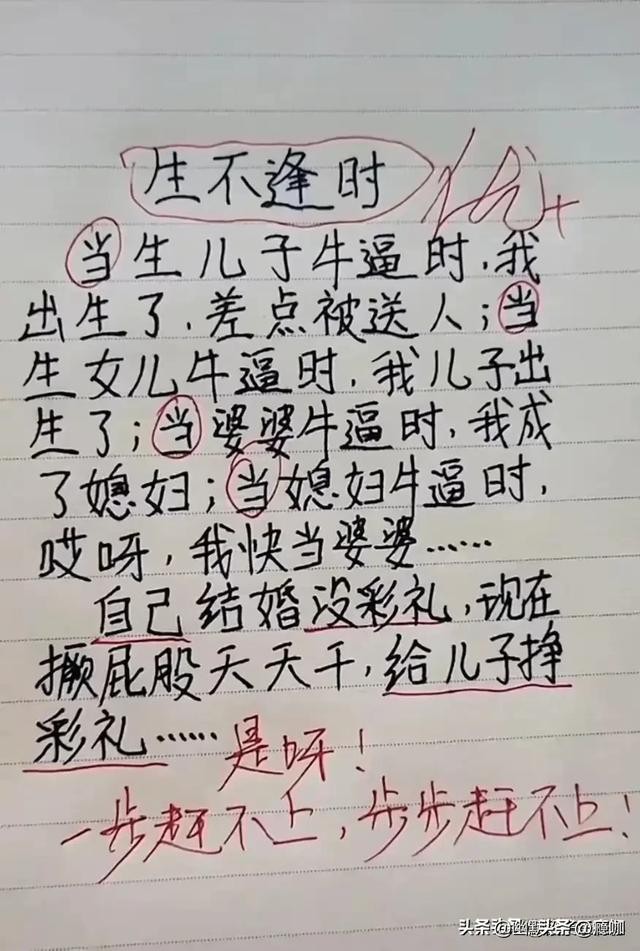 生不逢时 优+
当生儿子牛逼时,我
出生了,差点被送人;当
生女儿牛逼时,我儿子出
生了;当婆婆牛逼时,我成
了媳妇;当媳妇牛逼时,
哎呀,我快当婆婆……
自己结婚没彩礼,现在
撅屁股天天干,给儿子挣
彩礼……是呀!
一步赶不上,步步赶不上!